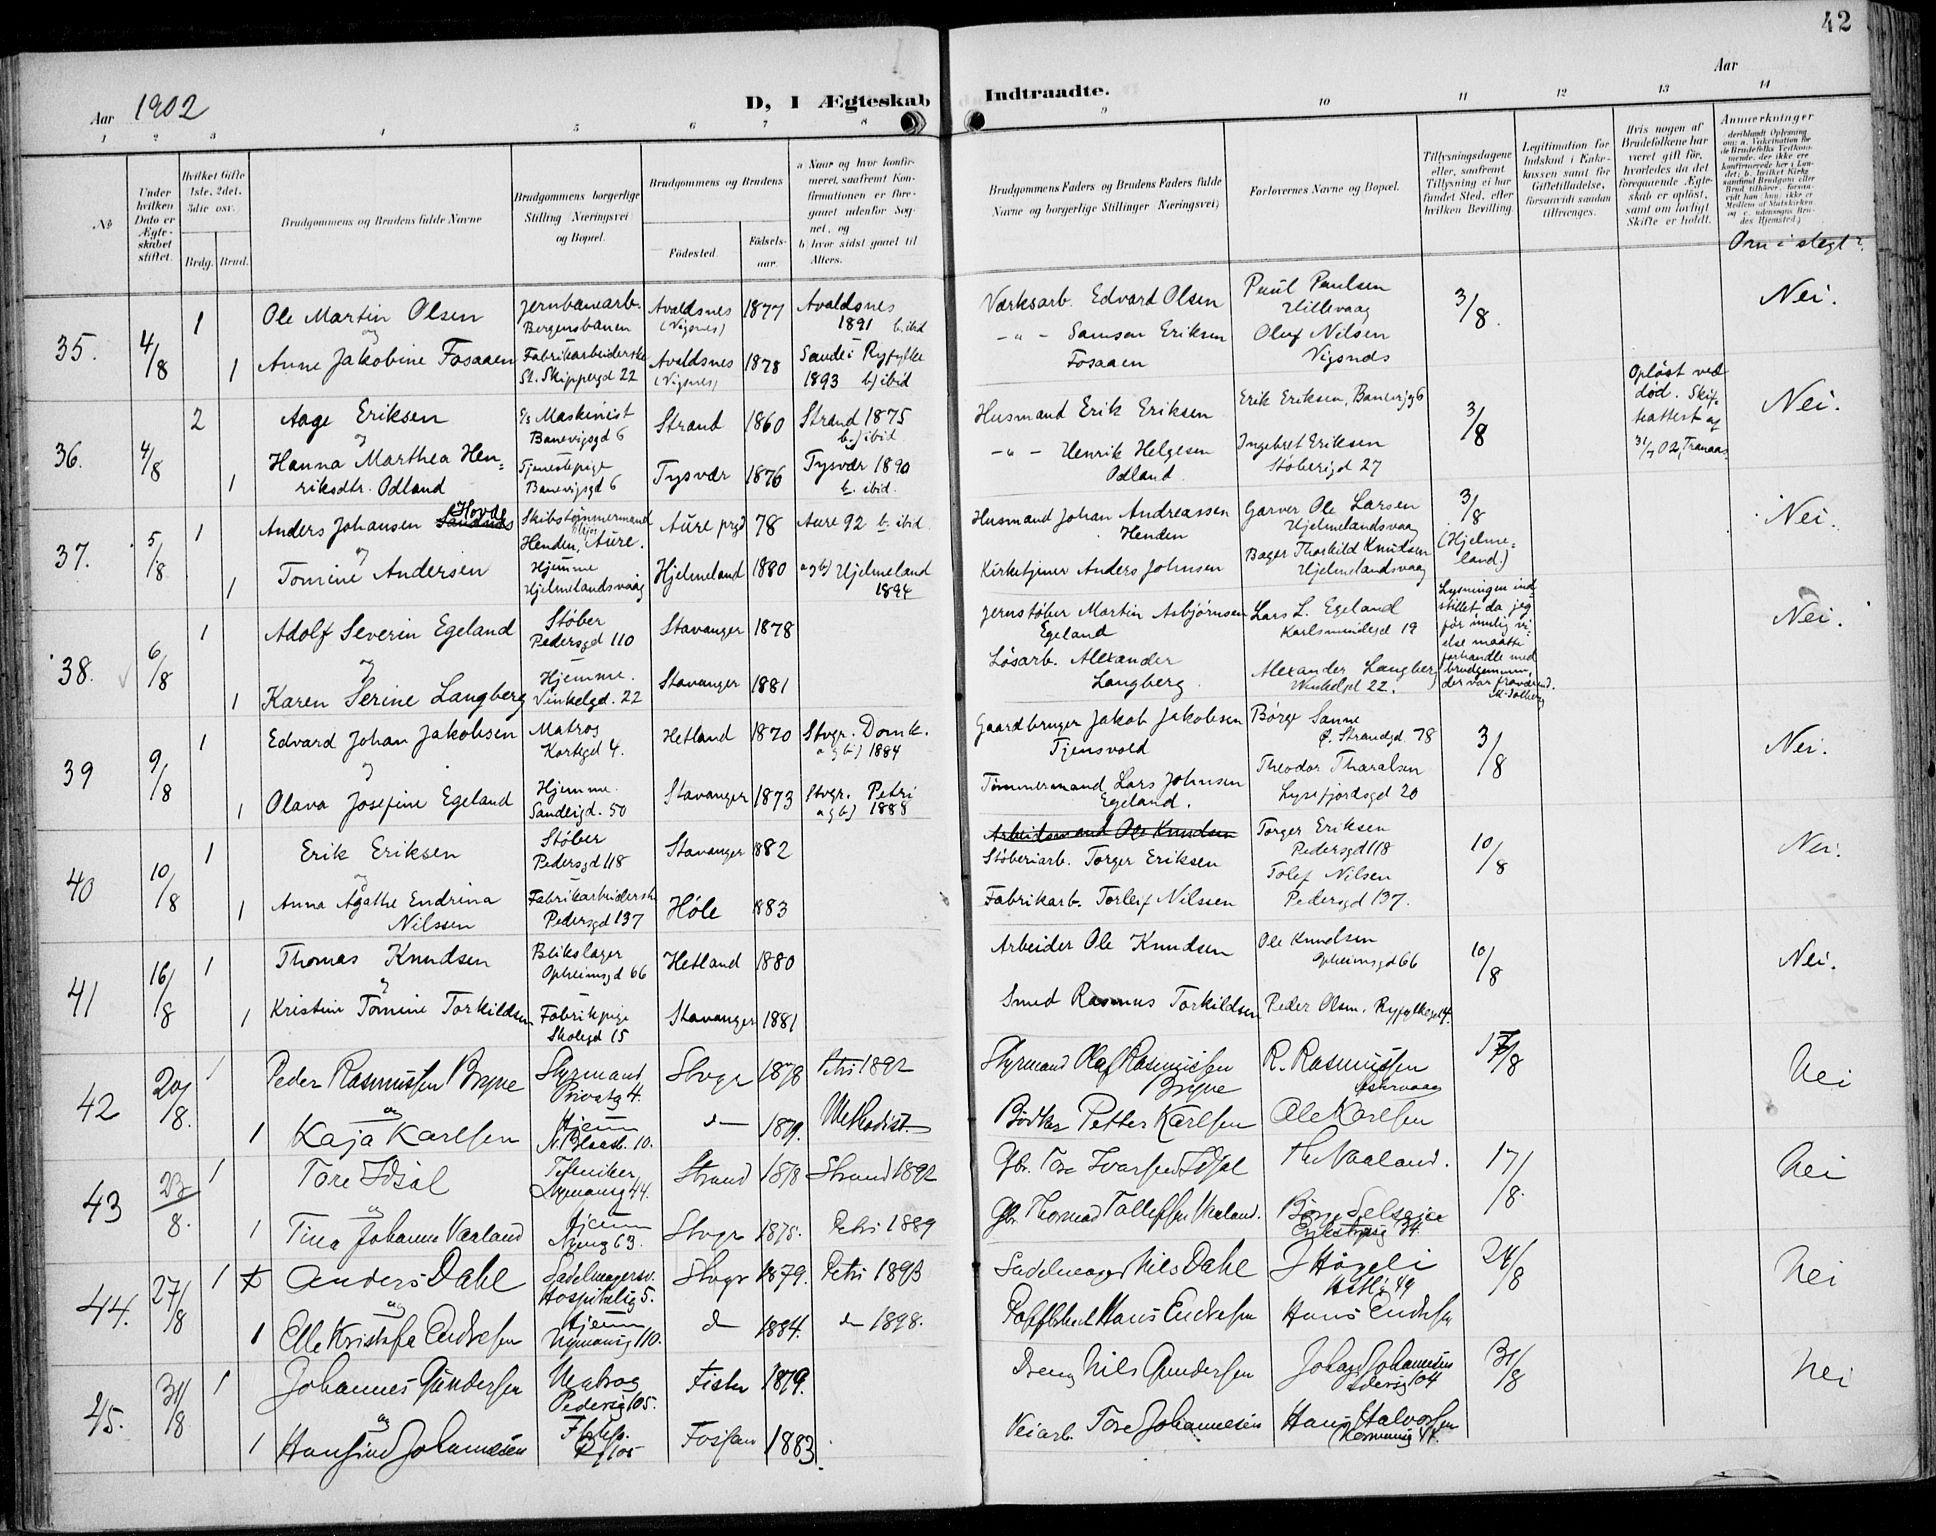 42
Aar 1902
D, I Ægteskab Indtraadte.
Aar
1 2 3 4 5 6 7 8 9 10 11 12 13 14
No
Under hvilken Dato er Ægteskabet stiftet.
Hvilket Gifte 1ste, 2det, 3die osv.
Brdg. Brud.
Brudgommens og Brudens fulde Navne
Brudgommens borgerlige Stilling Næringsvei og Bopæl.
Brudgommens og Brudens
Fødested.
Fødselsaar.
a Naar og hvor konfirmeret, saafremt Konfirmationen er foregaaet udenfor Sognet, og
b) hvor sidst gaaet til Alters.
Brudgommens Faders og Brudens Faders fulde Navne og borgerlige Stillinger Næringsvei)
Forlovernes Navne og Bopæl.
Tillysningsdagene eller, saafremt Tillysning ei har fundet Sted, efter hvilken Bevilling.
Legitimation for Indskud i Enkekassen samt for Giftetilladelse, forsaavidt saadan tiltrænges.
Hvis nogen af Brudefolkene har været gift før, hvorledes da det foregaaende Ægteskab er opløst, samt om lovligt Skifte er holdt.
Anmærkninger
Om i slegt?
35. 4/8 1 Ole Martin Olsen Jernbanearb. Bergensbanen Avaldsnes (Vigsnes) 1877 Avaldsnes 1891 b. ibid Værksarb. Edvard Olsen Paul Paulsen Lillevaag 3/8. Nei.
og
1 Anne Jakobine Fosaaen Fabrikarbeiderske St. Skippergd 22 Avaldsnes (Vigsnes) 1878 Sande i Ryfylke 1893 b) ibid -"- Samson Eriksen Fosaaen Oluf Nilsen Vigsnes
36. 4/8 2 Aage Eriksen Maskinist Banevigsgd 6 Strand 1860 Strand 1875 b.) ibid Husmand Erik Eriksen Erik Eriksen, Banevigsg 6 3/8 Opløst ved død. Skifteattest af 31/7 02, Tranaas Nei.
og
1 Hanna Marthea Henriksdtr. Odland Tjenestepige Banevigsgd 6 Tysvær 1876 Tysvær 1890 b. ibid. -"- Henrik Helgesen Odland Ingebret Eriksen Støberigd 27
37. 5/8 1 Anders Johansen Sandnes Hovde Skibstømmermand Henden, Aure. Aure prgd 78 Aure 92 b. ibid Husmand Johan Andreassen Henden Garver Ole Larsen Hjelmelandsvaag 3/8 (Hjelmeland.) Nei.
og
1 Tomine Andersen Hjemme Hjelmelandsvaag Hjelmeland 1880 a og b) Hjelmeland 1894 Kirketjener Anders Johnsen Bager Thorkild Knudsen Hjelmelandsvaag
38. 6/8 1 Adolf Severin Egeland Støber Pedersgd 110 Stavanger 1878 Jernstøber Martin Asbjørnsen Egeland Lars L. Egeland Karlsmindegd 19 Lysningen indstillet da jeg før mulig vielse maatte forhandle med brudgommen, der var fraværend. Nei.
og
1 Karen Serine Langberg Hjemme. Vinkelgd. 22 Stavanger 1881 Løsarb. Alexander Langberg. Alexander Langberg Vinkelgd 22.
39 9/8 1 Edvard Johan Jakobsen Matros Kortgd 4. Hetland 1870 Stvgr. Domk. a og b) 1884 Gaardbruger Jakob Jakobsen Tjensvold Børge Sanne Ø. Strandgd. 78 3/8 Nei.
og
1 Olava Josefine Egeland Hjemme. Sandeigd. 50 Stavanger 1873 Stvgr. Petri a og b) 1888 Tømmermand Lars Johnsen Egeland. Theodor Tharalsen Lysefjordsgd 20
40 10/8 1 Erik Eriksen Støber Pedersgd 118 Stavanger 1882 Arbeidsmand Ole Knudsen Støberiarb. Torger Eriksen Torger Eriksen Pedersgd 118 10/8 Nei.
og
1 Anna Agathe Endrina Nilssen Fabrikarbeiderske Pedersgd 137 Høle 1883 Fabrikarb. Torleif Nilssen Tolef Nilsen Pedersgd 137.
41 16/8 1 Thomas Knudsen Blikslager Opheimsgd 66 Hetland 1880 Arbeider Ole Knudsen Ole Knudsen Opheimsgd 66 10/8 Nei.
og
1 Kristine Tomine Torkildsen Fabrikpige Skolegd 15 Stavanger 1881 Smed Rasmus Torkildsen Peder Olsen.
42 20/8. 1 Peder Rasmussen Bryne Styrmand Privatg 4. Stvgr 1878 Petri 1892 Styrmand Olaf Rasmussen Bryne R. Rasmussen 17/8 Nei
og
1 Kaja Karlsen Hjem N. Blaasb. 10. d- 1879. Methodist. Bødker Petter Karlsen Ole Karlsen
43 23/8. 1 Tore Idsøl Nymansg 44. Strand 1878 Strand 1892 Gbr. Tore Ivarsen Idsøl Th Vaaland. 17/8. Nei
og
1 Tina Johanne Vaaland Hjem Nymg 63. Stvgr 1875. Petri 1889 Gbr. Thomas Tollefsen Vaaland.
44. 27/8 1 Anders Dahl Sadelmagersv. Hospitalsg 5. Stvgr 1879. Petri 1893 Sadelmager Nils Dahl 24/8 Nei
og
1 Elle Kristofa Endresen Hjem Nymansg 110. d- 1884. d- 1898. Hans Endresen Hans Endresen
45. 31/8 1 Johannes Gundersen Matros Pedersg 105. Fister 1879. Dreng Nils Gundersen Johan Johannesen 31/8 Nei
og
1 Hansine Johannesen Fossan 1883. Veiarb. Tore Johannesen Hans Halvorsen